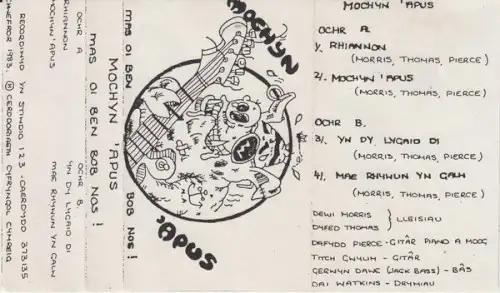 RECORDIWYD YN STIWDIO 123 - CAERDYDD 373135
IONEFROR 1983. Ⓟ CERDDORIAETH CYFRYNGOL CYMREIG
OCHR A
RHIANNON
MOCHYN 'APUS
OCHR B.
YN DY LYGAID DI
MAE RHYWUN YN GALW
MAS OI BEN BOB NOS!
MOCHYN 'APUS
MAS OI BEN
BOB NOS!
MOCHYN
'APUS
MOCHYN 'APUS
OCHR A.
1/. RHIANNON
(MORRIS, THOMAS, PIERCE)
2/. MOCHYN 'APUS
(MORRIS, THOMAS, PIERCE)
OCHR B.
3/. YN DY LYGAID DI
(MORRIS, THOMAS, PIERCE)
4/. MAE RHYWUN YN GALW
(MORRIS, THOMAS, PIERCE)
DEWI MORRIS
DYFED THOMAS } LLEISIAU
DAFYDD PIERCE - GITÂR PIANO A MOOG
TITCH GWYLIM - GITÂR
GERWYN DAWE (JACK BASS) - BÂS
DAI WATKINS - DRYMIAU